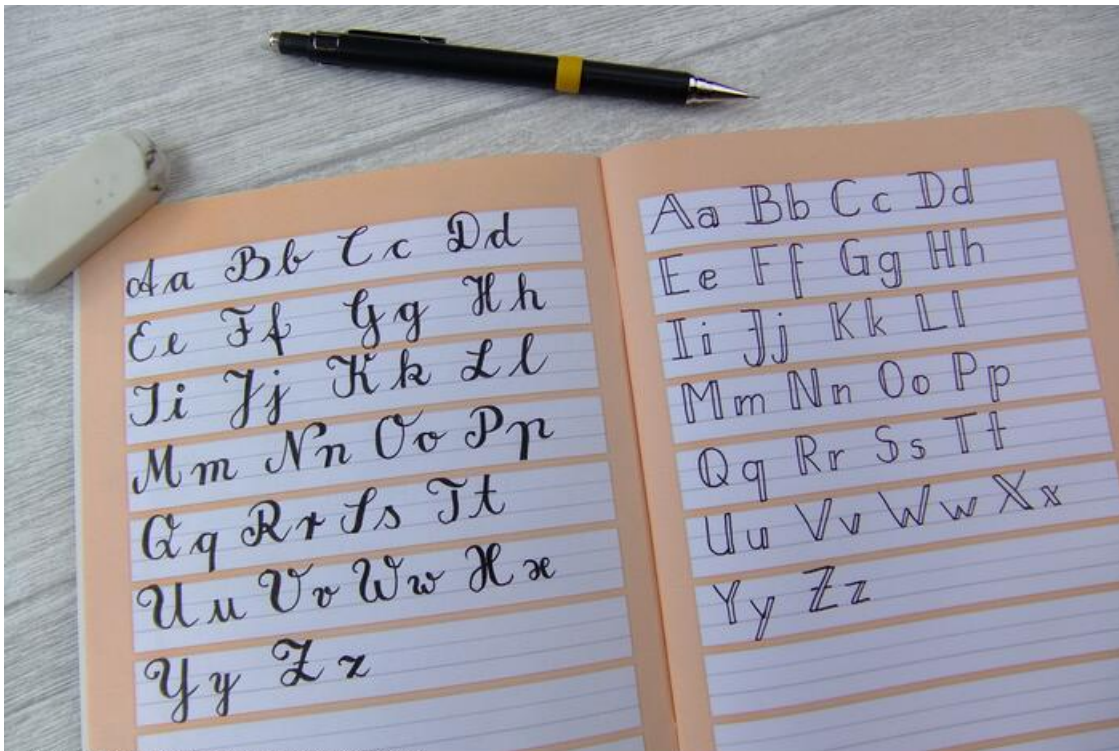 Aa Bb Cc Dd
Ee Ff Gg Hh
Ii Jj Kk Ll
Mm Nn Oo Pp
Qq Rr Ss Tt
Uu Vv Ww Xx
Yy Zz
Aa Bb Cc Dd
Ee Ff Gg Hh
Ii Jj Kk Ll
Mm Nn Oo Pp
Qq Rr Ss Tt
Uu Vv Ww Xx
Yy Zz